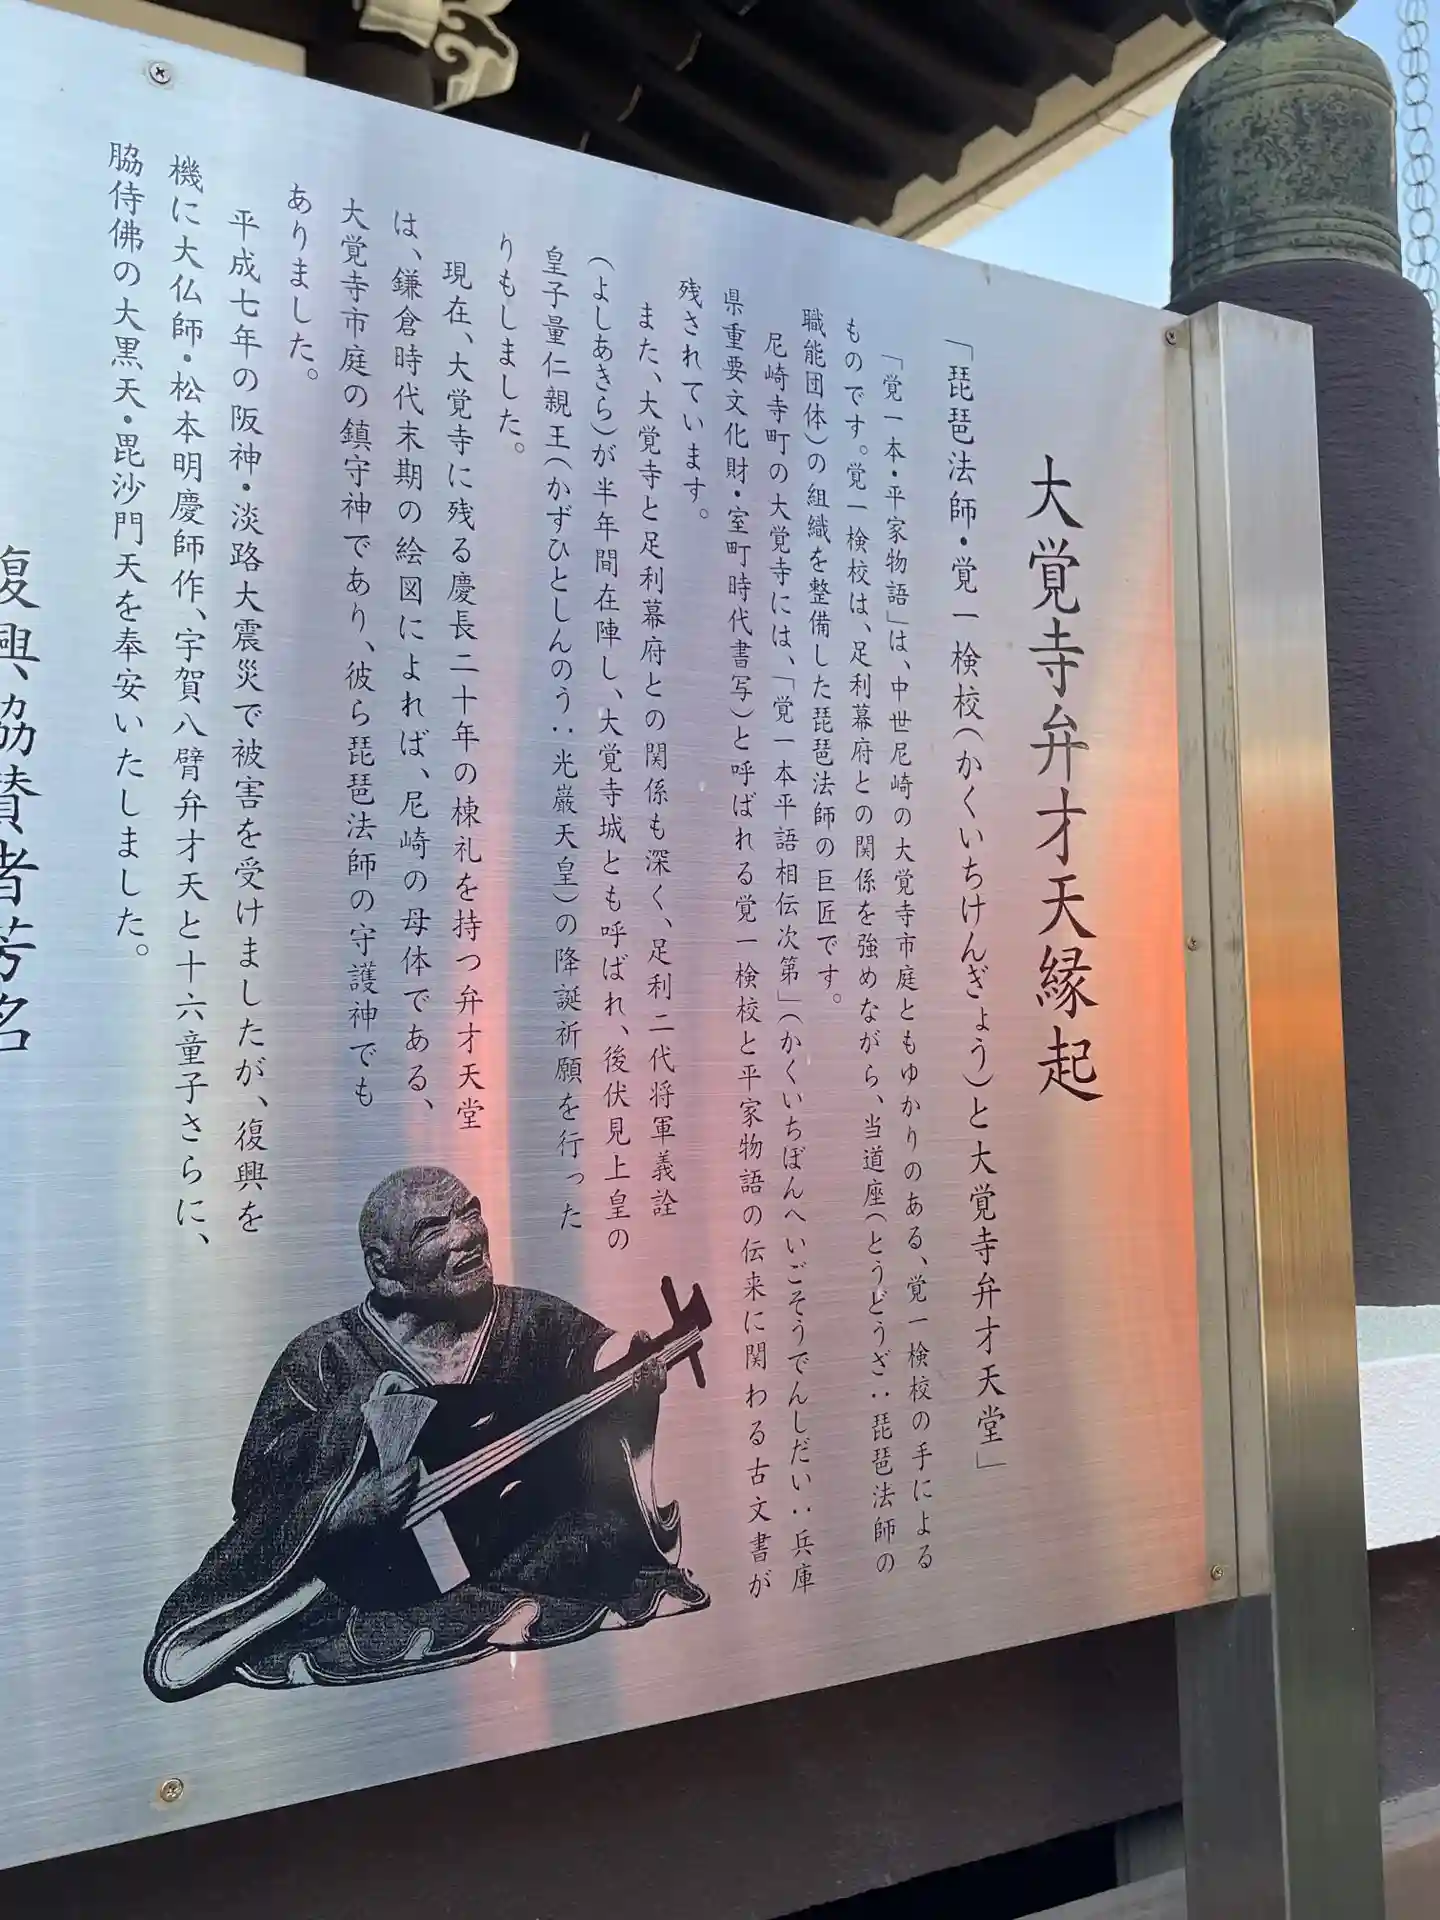 大覚寺弁才天縁起
「琵琶法師・覚一検校(かくいちけんぎょう)と大覚寺弁才天堂」
「覚一本・平家物語」は、中世尼崎の大覚寺市庭ともゆかりのある、覚一検校の手による
ものです。覚一検校は、足利幕府との関係を強めながら、当道座(とうどうざ：琵琶法師の
職能団体)の組織を整備した琵琶法師の巨匠です。
尼崎寺町の大覚寺には、「覚一本平語相伝次第」(かくいちぼんへいごそうでんしだい：兵庫
県重要文化財・室町時代書写)と呼ばれる覚一検校と平家物語の伝来に関わる古文書が
残されています。
また、大覚寺と足利幕府との関係も深く、足利二代将軍義詮
(よしあきら)が半年間在陣し、大覚寺城とも呼ばれ、後伏見上皇の
皇子量仁親王(かずひとしんのう：光厳天皇)の降誕祈願を行った
りもしました。
現在、大覚寺に残る慶長二十年の棟札を持つ弁才天堂
は、鎌倉時代末期の絵図によれば、尼崎の母体である、
大覚寺市庭の鎮守神であり、彼ら琵琶法師の守護神でも
ありました。
平成七年の阪神・淡路大震災で被害を受けましたが、復興を
機に大仏師・松本明慶師作、宇賀八臂弁才天と十六童子さらに、
脇侍佛の大黒天・毘沙門天を奉安いたしました。
復興協賛者芳名